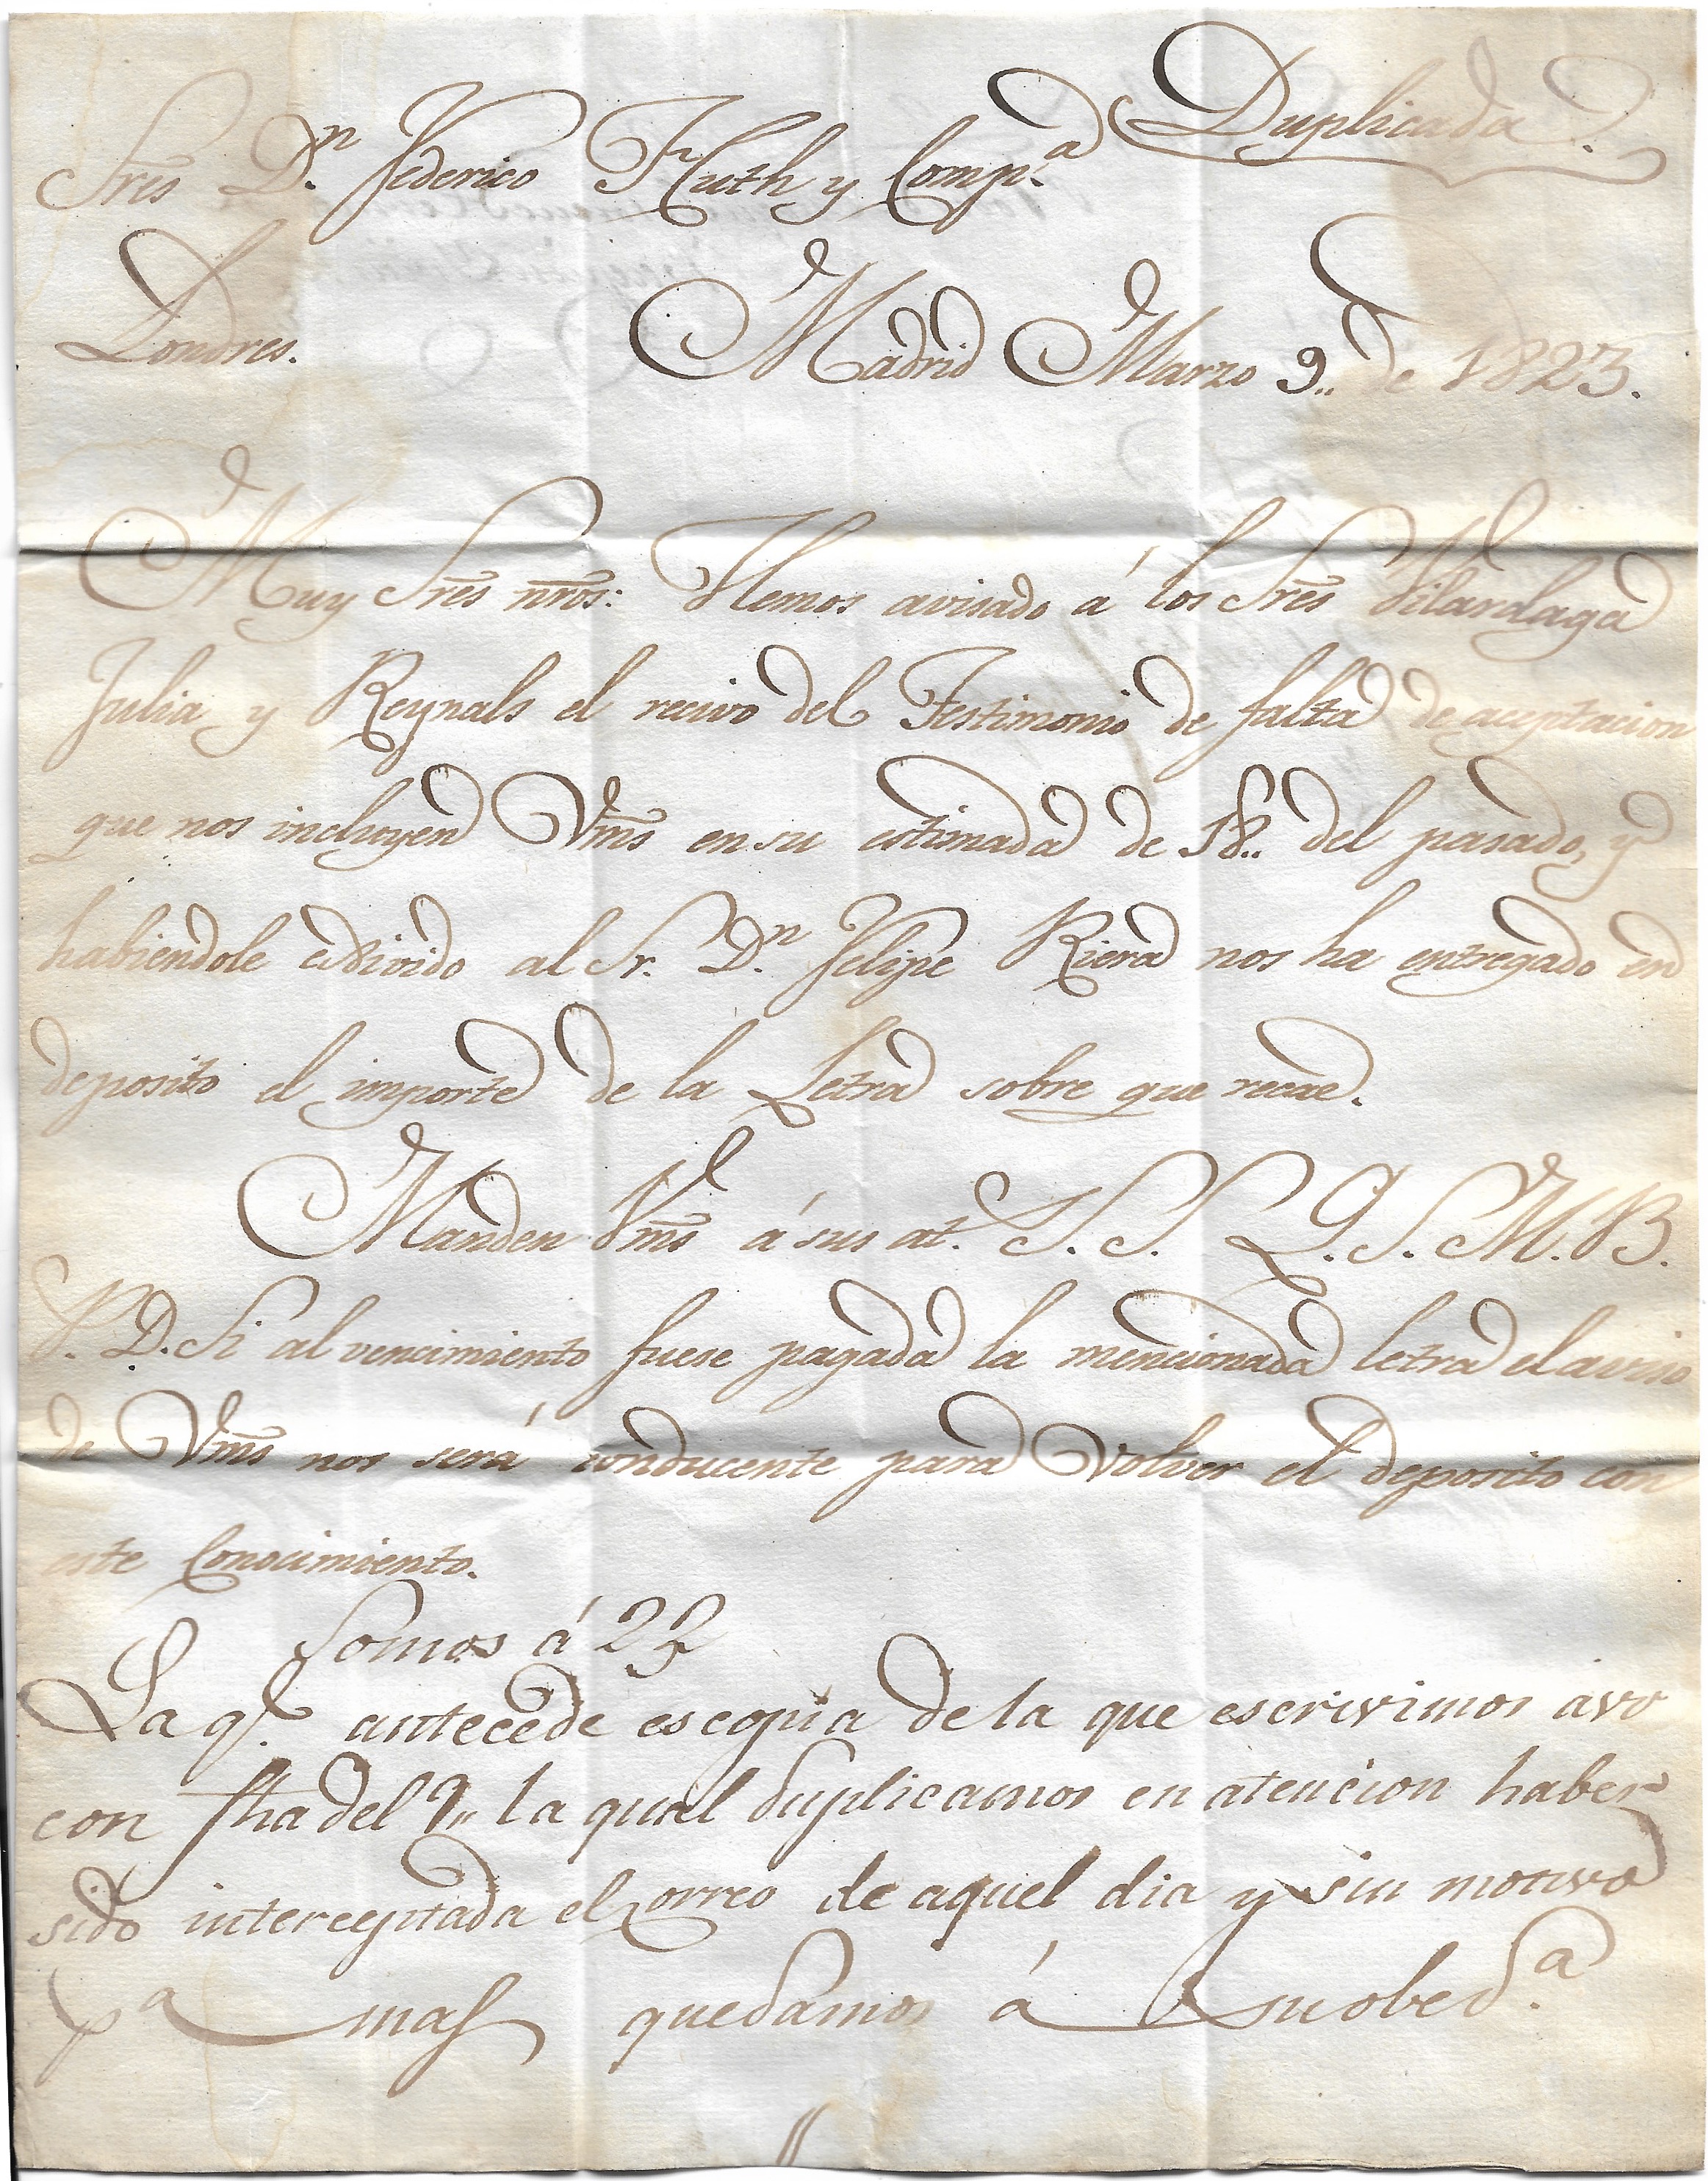 Duplicada.
Sres Dn. Federico Huth y Compa.
Londres.
Madrid Marzo 9.. de 1823.
Muy Sres nros: Hemos avisado á los Sres Vilardaga
Julia y Reynals el recivo del Testimonio de falta de aceptacion
que nos incluyen Vms en su estimada de 18.. del pasado, y
habiendole exivido al Sr. Dn. Felipe Riera nos ha entregado en
deposito el importe de la Letra sobre que recae.
Manden Vms á sus at. S. S. Q. S. M. B.
P. D. Si al vencimiento fuese pagada la mencionada letra el aviso
de Vms nos será conducente para volver el deposito con
este Conocimiento.
Somos á 23
La q. antecede es copia de la que escrivimos a vo
con fha del 9,, la qual duplicamos en atencion haber
sido interceptada el Correo de aquel dia y sin motivo
pa mas quedamos á su obeda.